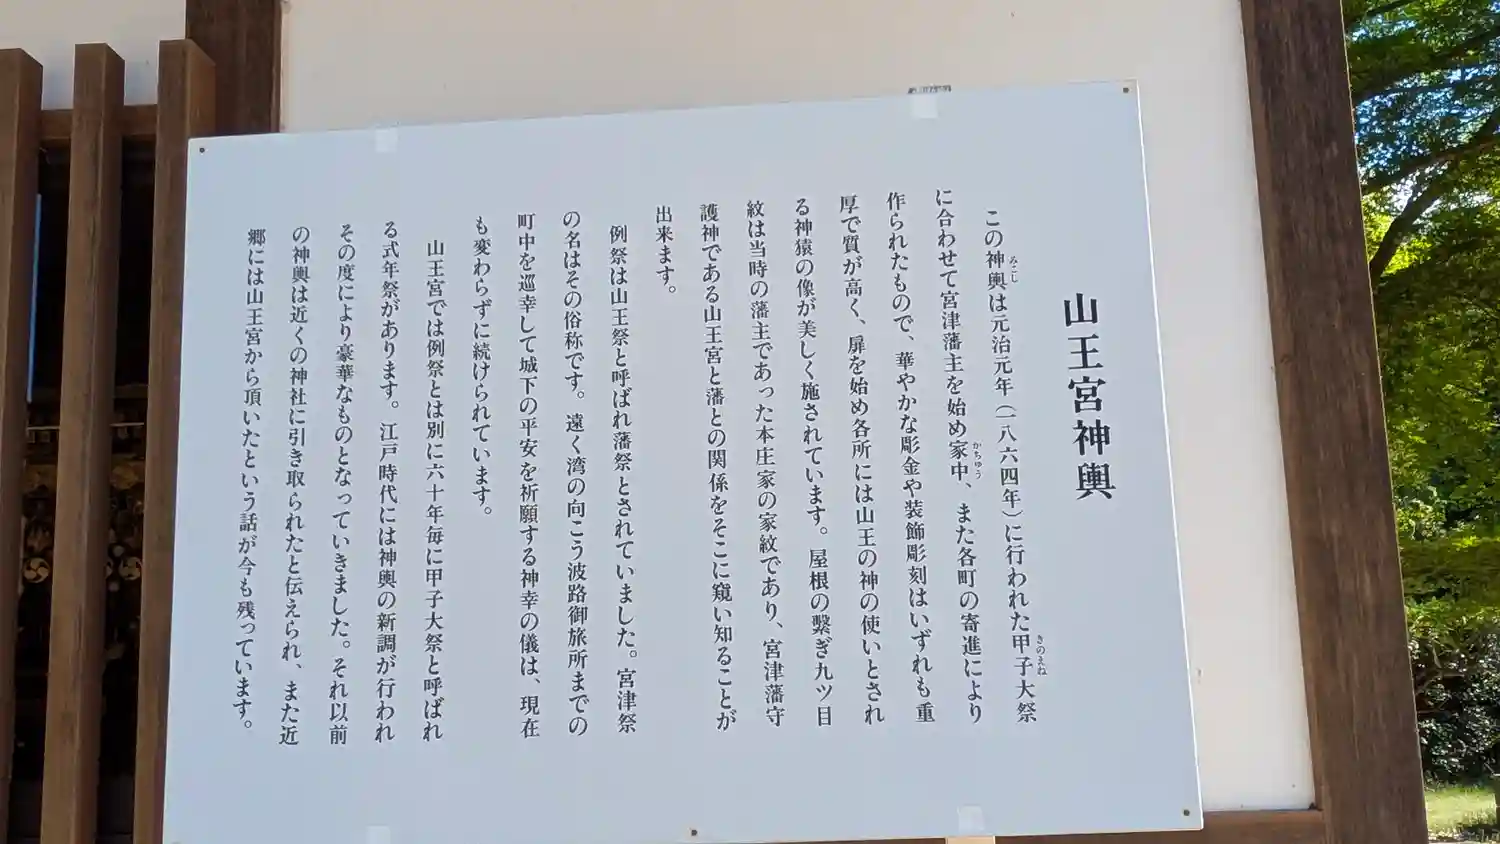 山王宮神輿
この神輿は元治元年（一八六四年）に行われた甲子大祭
みこし
きのえね
に合わせて宮津藩主を始め家中、また各町の寄進により
かちゅう
作られたもので、華やかな彫金や装飾彫刻はいずれも重
厚で質が高く、扉を始め各所には山王の神の使いとされ
る神猿の像が美しく施されています。屋根の繋ぎ九ツ目
紋は当時の藩主であった本庄家の家紋であり、宮津藩守
護神である山王宮と藩との関係をそこに窺い知ることが
出来ます。
例祭は山王祭と呼ばれ藩祭とされていました。宮津祭
の名はその俗称です。遠く湾の向こう波路御旅所までの
町中を巡幸して城下の平安を祈願する神幸の儀は、現在
も変わらずに続けられています。
山王宮では例祭とは別に六十年毎に甲子大祭と呼ばれ
る式年祭があります。江戸時代には神輿の新調が行われ
その度により豪華なものとなっていきました。それ以前
の神輿は近くの神社に引き取られたと伝えられ、また近
郷には山王宮から頂いたという話が今も残っています。